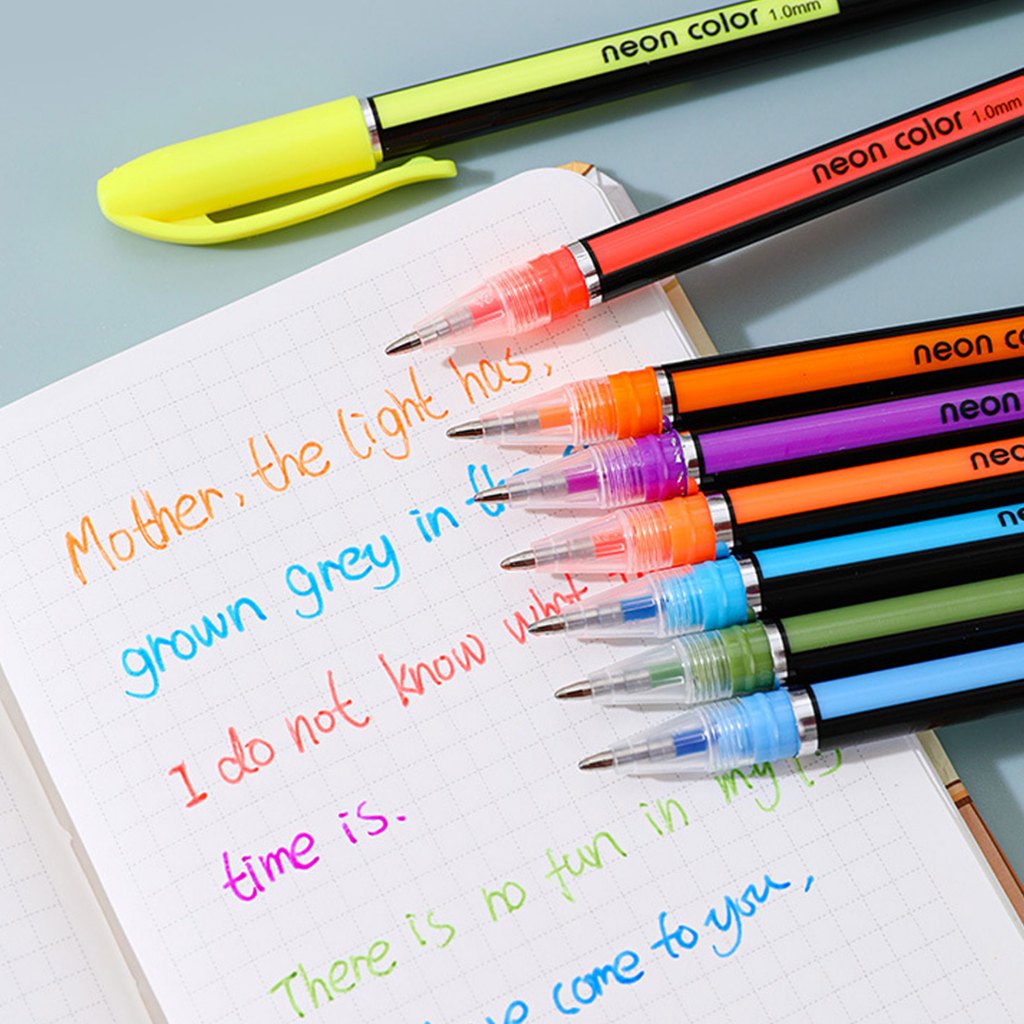 neon color 1.0mm
neon color 1.0mm
neon
neon
Mother, the light has,
grown grey in
I do not know
time is.
There is no fun in my
come to you,